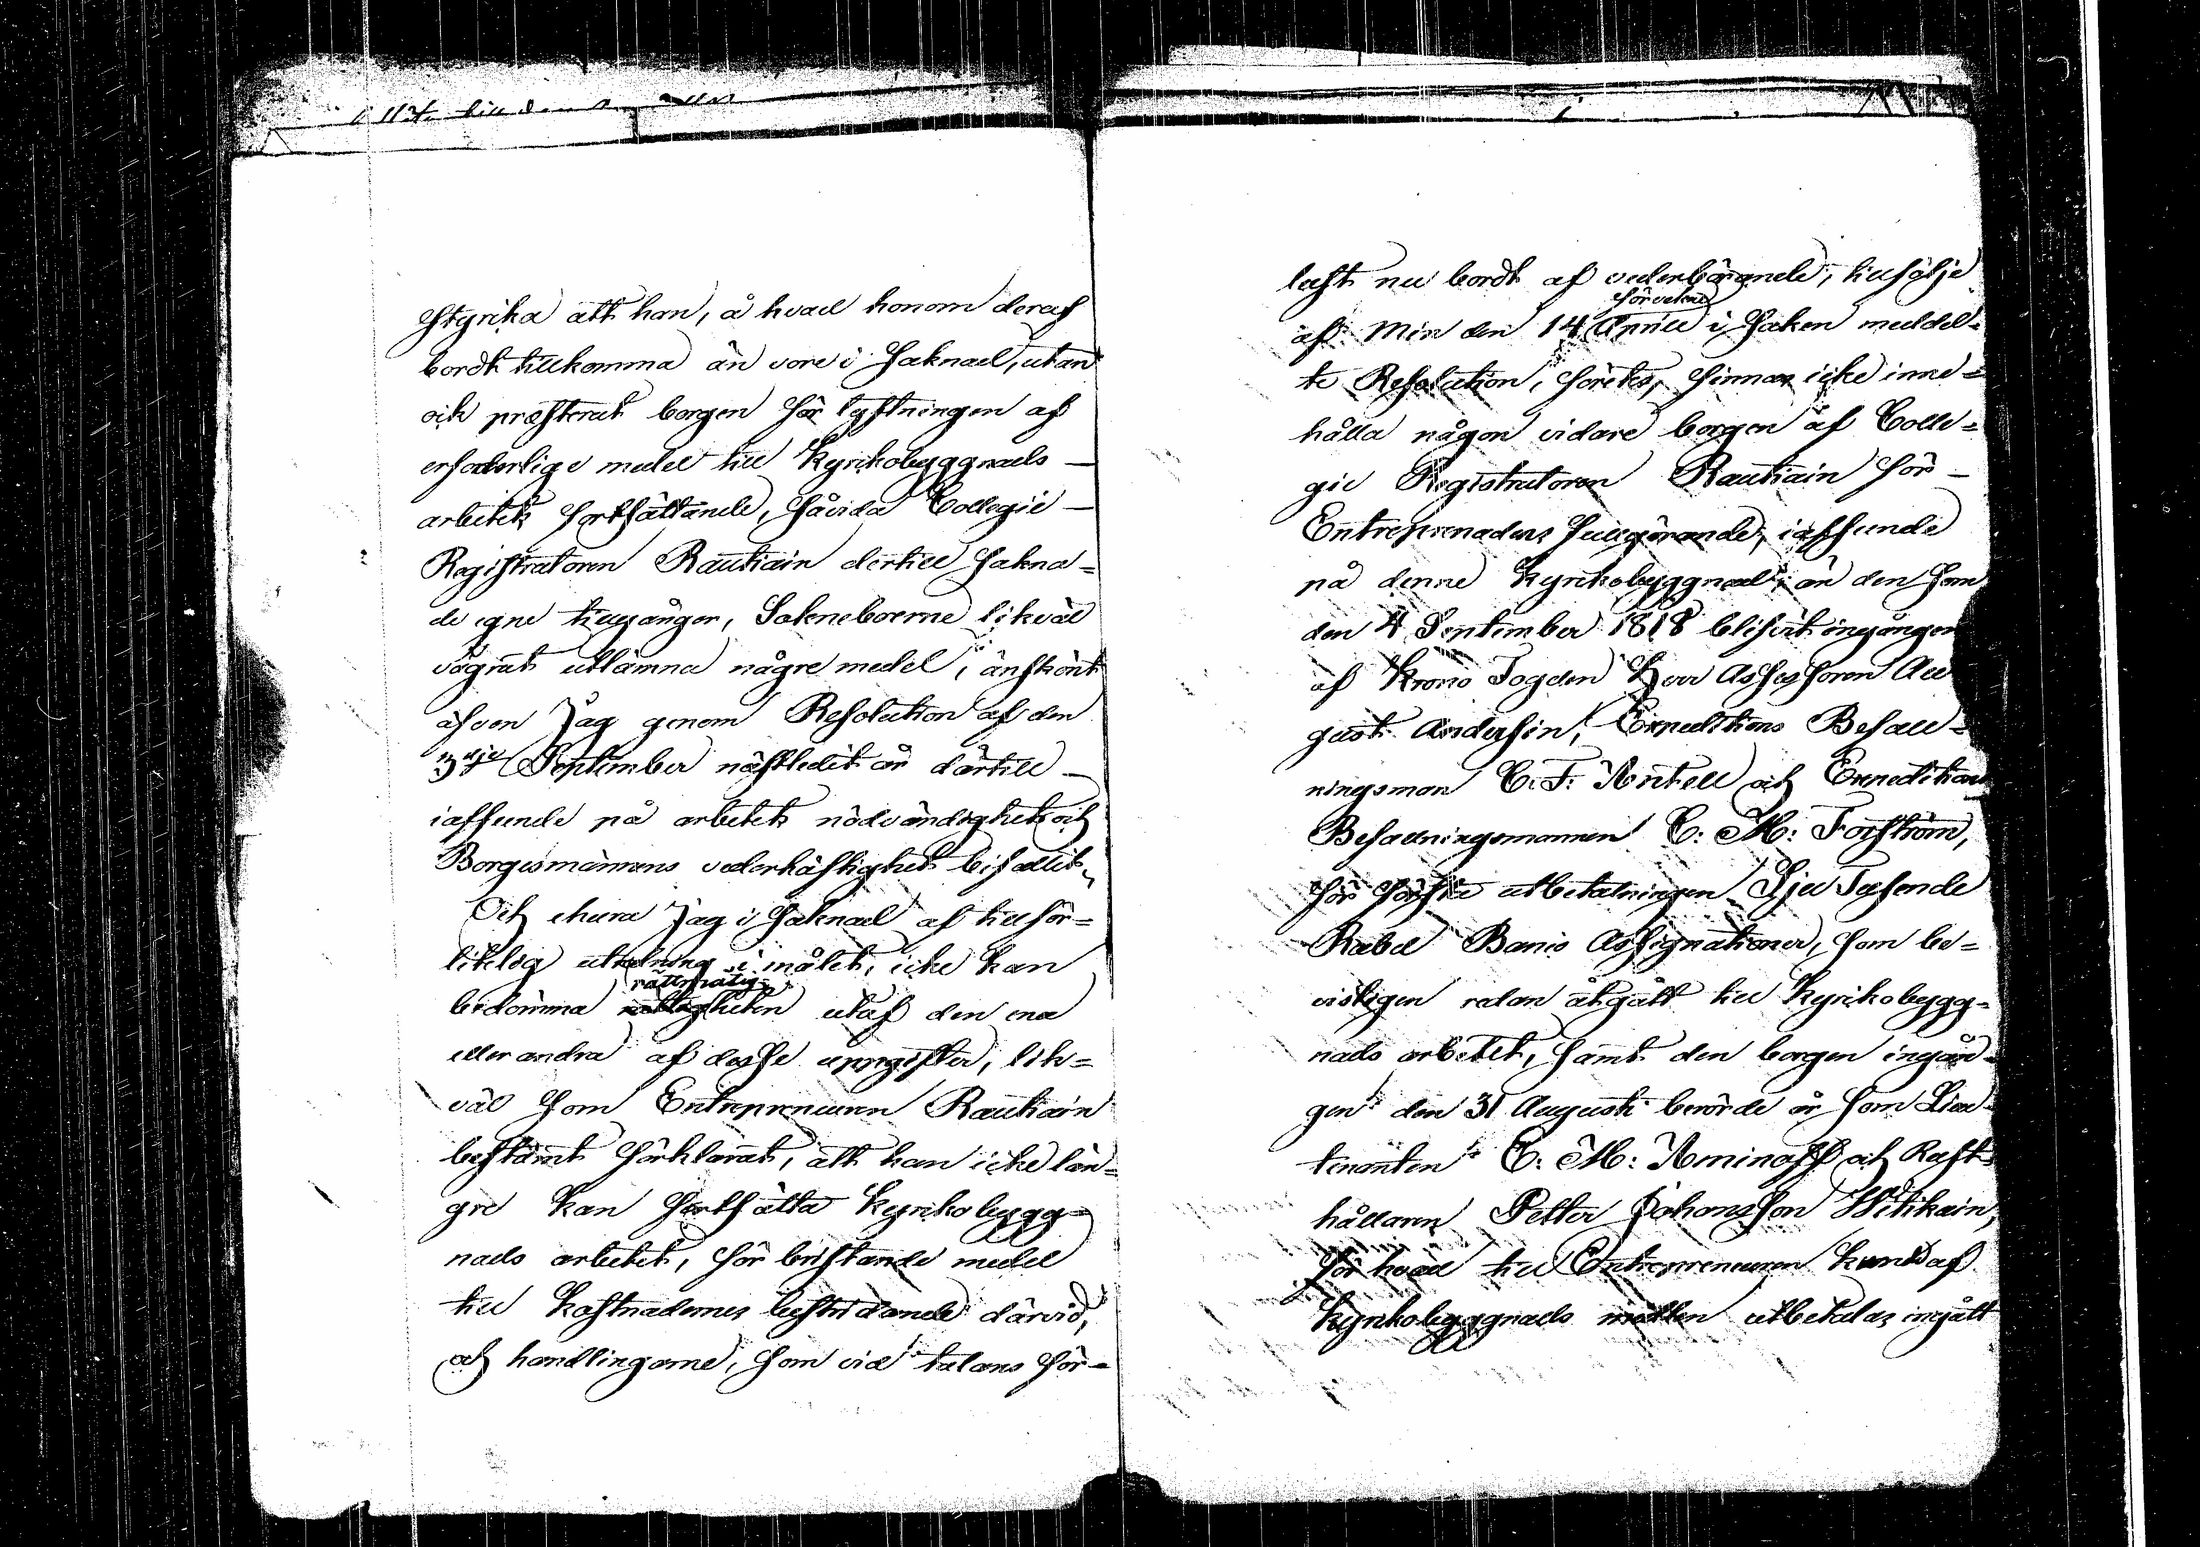 styrka att han, å hvad honom deraf
bordt tillkomma än vore i saknad, utan
ock præsterat borgen för lyftningen af
erforderlige medel till Kyrkobyggnads
arbetets fortsättande, såvida Collegii
Registratoren Rautiain dertill sakna=
de egne tillgångor, Sokneboerne likväl
vägrat utlämna någre medel, änskönt
äfven Jag genom Resolution af den
3dje September nästledit år därtill
iaffunde på arbetets nödvändighet och
Borgesmännens vederhäftighet bifallit,
Och ehuru Jag i saknad af tillför=
litelig utredning i målet, icke kan
rättmätig
bedömma heten utaf den ena
eller andra af desse uppgifter, lik=
väl som Entrepreneuren Rautiain
bestämt förklarat, att han icke län=
gre kan fortsätta Kyrkobygg=
nads arbetet, för bristande medel
till kostnadernes bestridande därvid,
och handlingarne, som vid talans för=
last nu bordt af vederbörande, tillfölje
förvekne
af Min den 14 Aprill i saken meddel=
te Resolution, företes, finnas icke inne=
hålla någon vidare borgen af Colle=
gii Registratoren Rautiain för
Entreprenadens fullgörande, iaffunde
på denne Kyrkobyggnad, än den som
den 4 September 1818 blifvit ingången
af Krono Fogden Herr Assessoren Au
gust Andersin, Expeditions Befall=
ningsman C. F. Antell och Expeditions
Befallningsmannen C: M: Forström,
för första utbetalningen Sju Tusende
Rubel Banco Assignationer, som be=
visligen redan åtgått till Kyrkobygg=
nads arbetet, samt den borgen ingån=
gen den 31 Augusti berörde år som Lieu=
tenanten C: M: Aminoff och Rust=
hållaren Petter Johansson Witikain,
för hvad till Entrepreneuren kund af
Kyrkobyggnads medlen utbetalas ingått